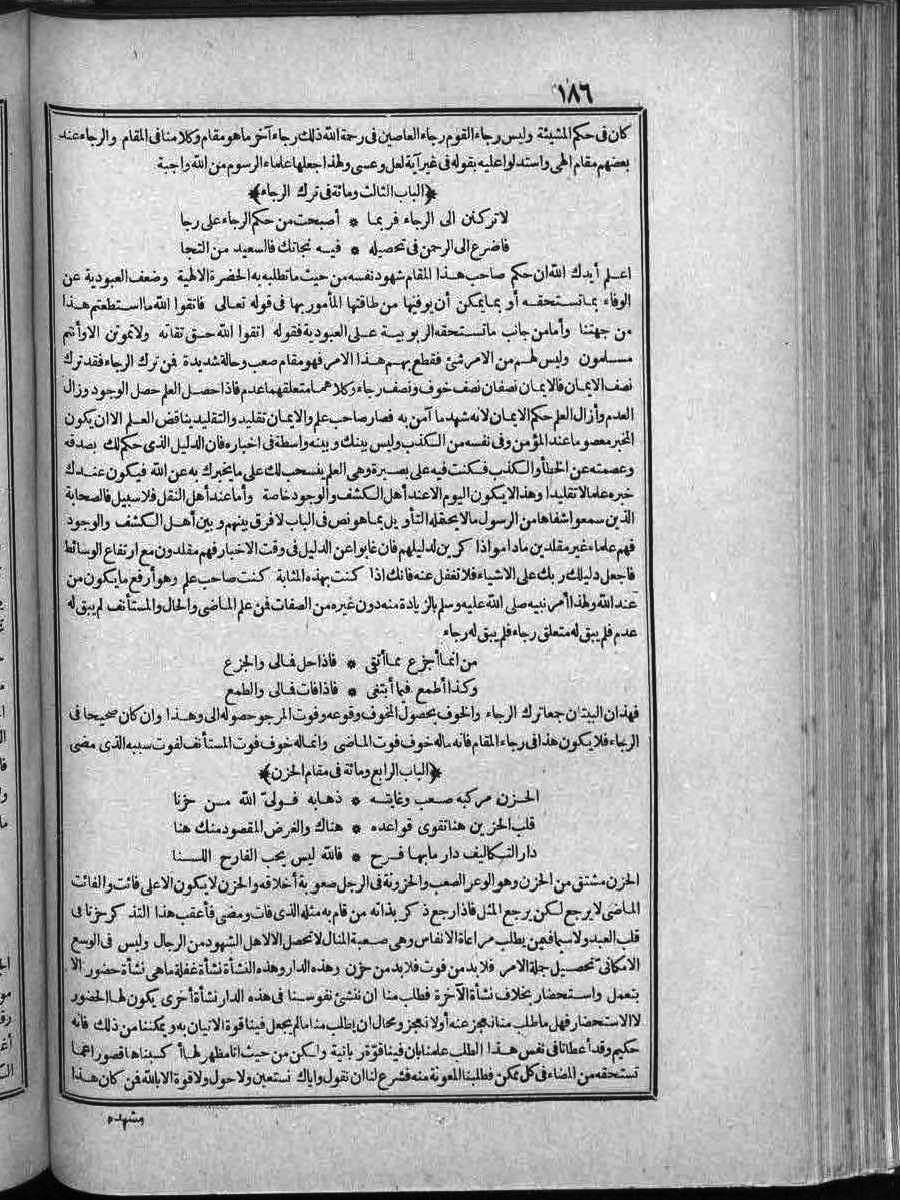 ١٨٦
كان فى حكم المشيئة وليس رجاء القوم رجاء العاصين فى رحمة الله ذلك رجاء آخر ما هو مقام وكلامنا فى المقام والرجاء عند
بعضهم مقام الهى واستدلوا عليه بقوله فى غير آية لعل وعسى ولهذا جعلها علماء الرسوم من الله واجبة
﴿الباب الثالث ومائة فى ترك الرجاء﴾
لا تركنن الى الرجاء فربما * أصبحت من حكم الرجاء على رجا
فاضرع الى الرحمن فى تحصيله * فيه نجاتك فالسعيد من النجا
اعلم أيدك الله ان حكم صاحب هذا المقام شهود نفسه من حيث ما تطلبه به الحضرة الالهية وضعف العبودية عن
الوفاء بما تستحقه أو بما يمكن أن يوفيها من طاقتها المأمور بها فى قوله تعالى فاتقوا الله ما استطعتم هذا
من جهتنا وأما من جانب ما تستحقه الربوبية على العبودية فقوله اتقوا الله حق تقاته ولا تموتن الا وأنتم
مسلمون وليس لهم من الامر شئ فقطع بهم هذا الامر فهو مقام صعب وحالة شديدة فمن ترك الرجاء فقد ترك
نصف الايمان فالايمان نصفان نصف خوف ونصف رجاء وكلاهما متعلقهما عدم فاذا حصل العلم حصل الوجود وزال
العدم وأزال العلم حكم الايمان لانه شهد ما آمن به فصار صاحب علم والايمان تقليد والتقليد يناقض العلم الا ان يكون
المخبر معصوما عند المؤمن وفى نفسه من الكذب وليس بينك وبينه واسطة فى اخباره فان الدليل الذى حكم لك بصدقه
وعصمته عن الخطأ والكذب فكنت فيه على بصيرة وهى العلم ينسحب لك على ما يخبرك به عن الله فيكون عندك
خبره علما لا تقليدا وهذا لا يكون اليوم الا عند أهل الكشف والوجود خاصة وأما عند أهل النقل فلا سبيل فالصحابة
الذين سمعوا شفاها من الرسول ما لا يحتمله التأويل بما هو نص فى الباب لا فرق بينهم وبين أهل الكشف والوجود
فهم علماء غير مقلدين ما داموا ذاكرين لدليلهم فان غابوا عن الدليل فى وقت الاخبار فهم مقلدون مع ارتفاع الوسائط
فاجعل دليلك ربك على الاشياء فلا تغفل عنه فانك اذا كنت بهذه المثابة كنت صاحب علم وهو أرفع ما يكون من
عند الله ولهذا أمر نبيه صلى الله عليه وسلم بالزيادة منه دون غيره من الصفات فمن علم الماضى والحال والمستأنف لم يبق له
عدم فلم يبق له متعلق رجاء فلم يبق له رجاء
من انما أجزع مما أتقى * فاذا حل فمالى والجزع
وكذا أطمع فيما أبتغى * فاذا فات فمالى والطمع
فهذان البيتان جمعا ترك الرجاء والخوف بحصول المخوف وقوعه وفوت المرجو حصوله الى وهذا وان كان صحيحا فى
الرجاء فلا يكون هذا فى رجاء المقام فانه ماله خوف فوت الماضى وانما له خوف فوت المستأنف لفوت سببه الذى مضى
﴿الباب الرابع ومائة فى مقام الحزن﴾
الحزن مركبه صعب وغايته * ذهابه فولىّ الله من حزنا
قلب الحزين هنا تقوى قواعده * هناك والغرض المقصود منك هنا
دار التكاليف دار ما بها فرح * فالله ليس يحب الفارح اللسنا
الحزن مشتق من الحزن وهو الوعر الصعب والحزونة فى الرجل صعوبة أخلاقه والحزن لا يكون الا على فائت والفائت
الماضى لا يرجع لكن يرجع المثل فاذا رجع ذكر بذاته من قام به مثله الذى فات ومضى فأعقب هذا التذكر حزنا فى
قلب العبد ولا سيما فيمن يطلب مراعاة الانفاس وهى صعبة المنال لا تحصل الا لاهل الشهود من الرجال وليس فى الوسع
الامكانىّ تحصيل جملة الامر فلا بد من فوت فلا بد من حزن وهذه الدار وهذه النشأة نشأة غفلة ما هى نشأة حضور الا
بتعمل واستحضار بخلاف نشأة الآخرة فطلب منا ان ننشئ نفوسنا فى هذه الدار نشأة أخرى يكون لها الحضور
لا الاستحضار فهل ما طلب منا نعجز عنه أو لا نعجز ومحال ان يطلب منا ما لم يجعل فينا قوة الاتيان به ويمكننا من ذلك فانه
حكيم وقد أعطانا فى نفس هذا الطلب علمنا بان فينا قوّة ربانية ولكن من حيث انا مظهر لها أكسبناها قصورا عما
تستحقه من المضاء فى كل ممكن فطلبنا المعونة منه فشرع لنا ان نقول واياك نستعين ولا حول ولا قوة الا بالله فمن كان هذا
مشهده